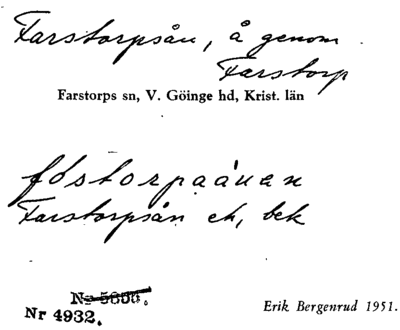 Farstorpsån, å genom
Farstorp
Farstorps sn, V. Göinge hd, Krist. län
fóstorpaånan
Farstorpsån ek, bek
Nr 4932.
Erik Bergenrud 1951.